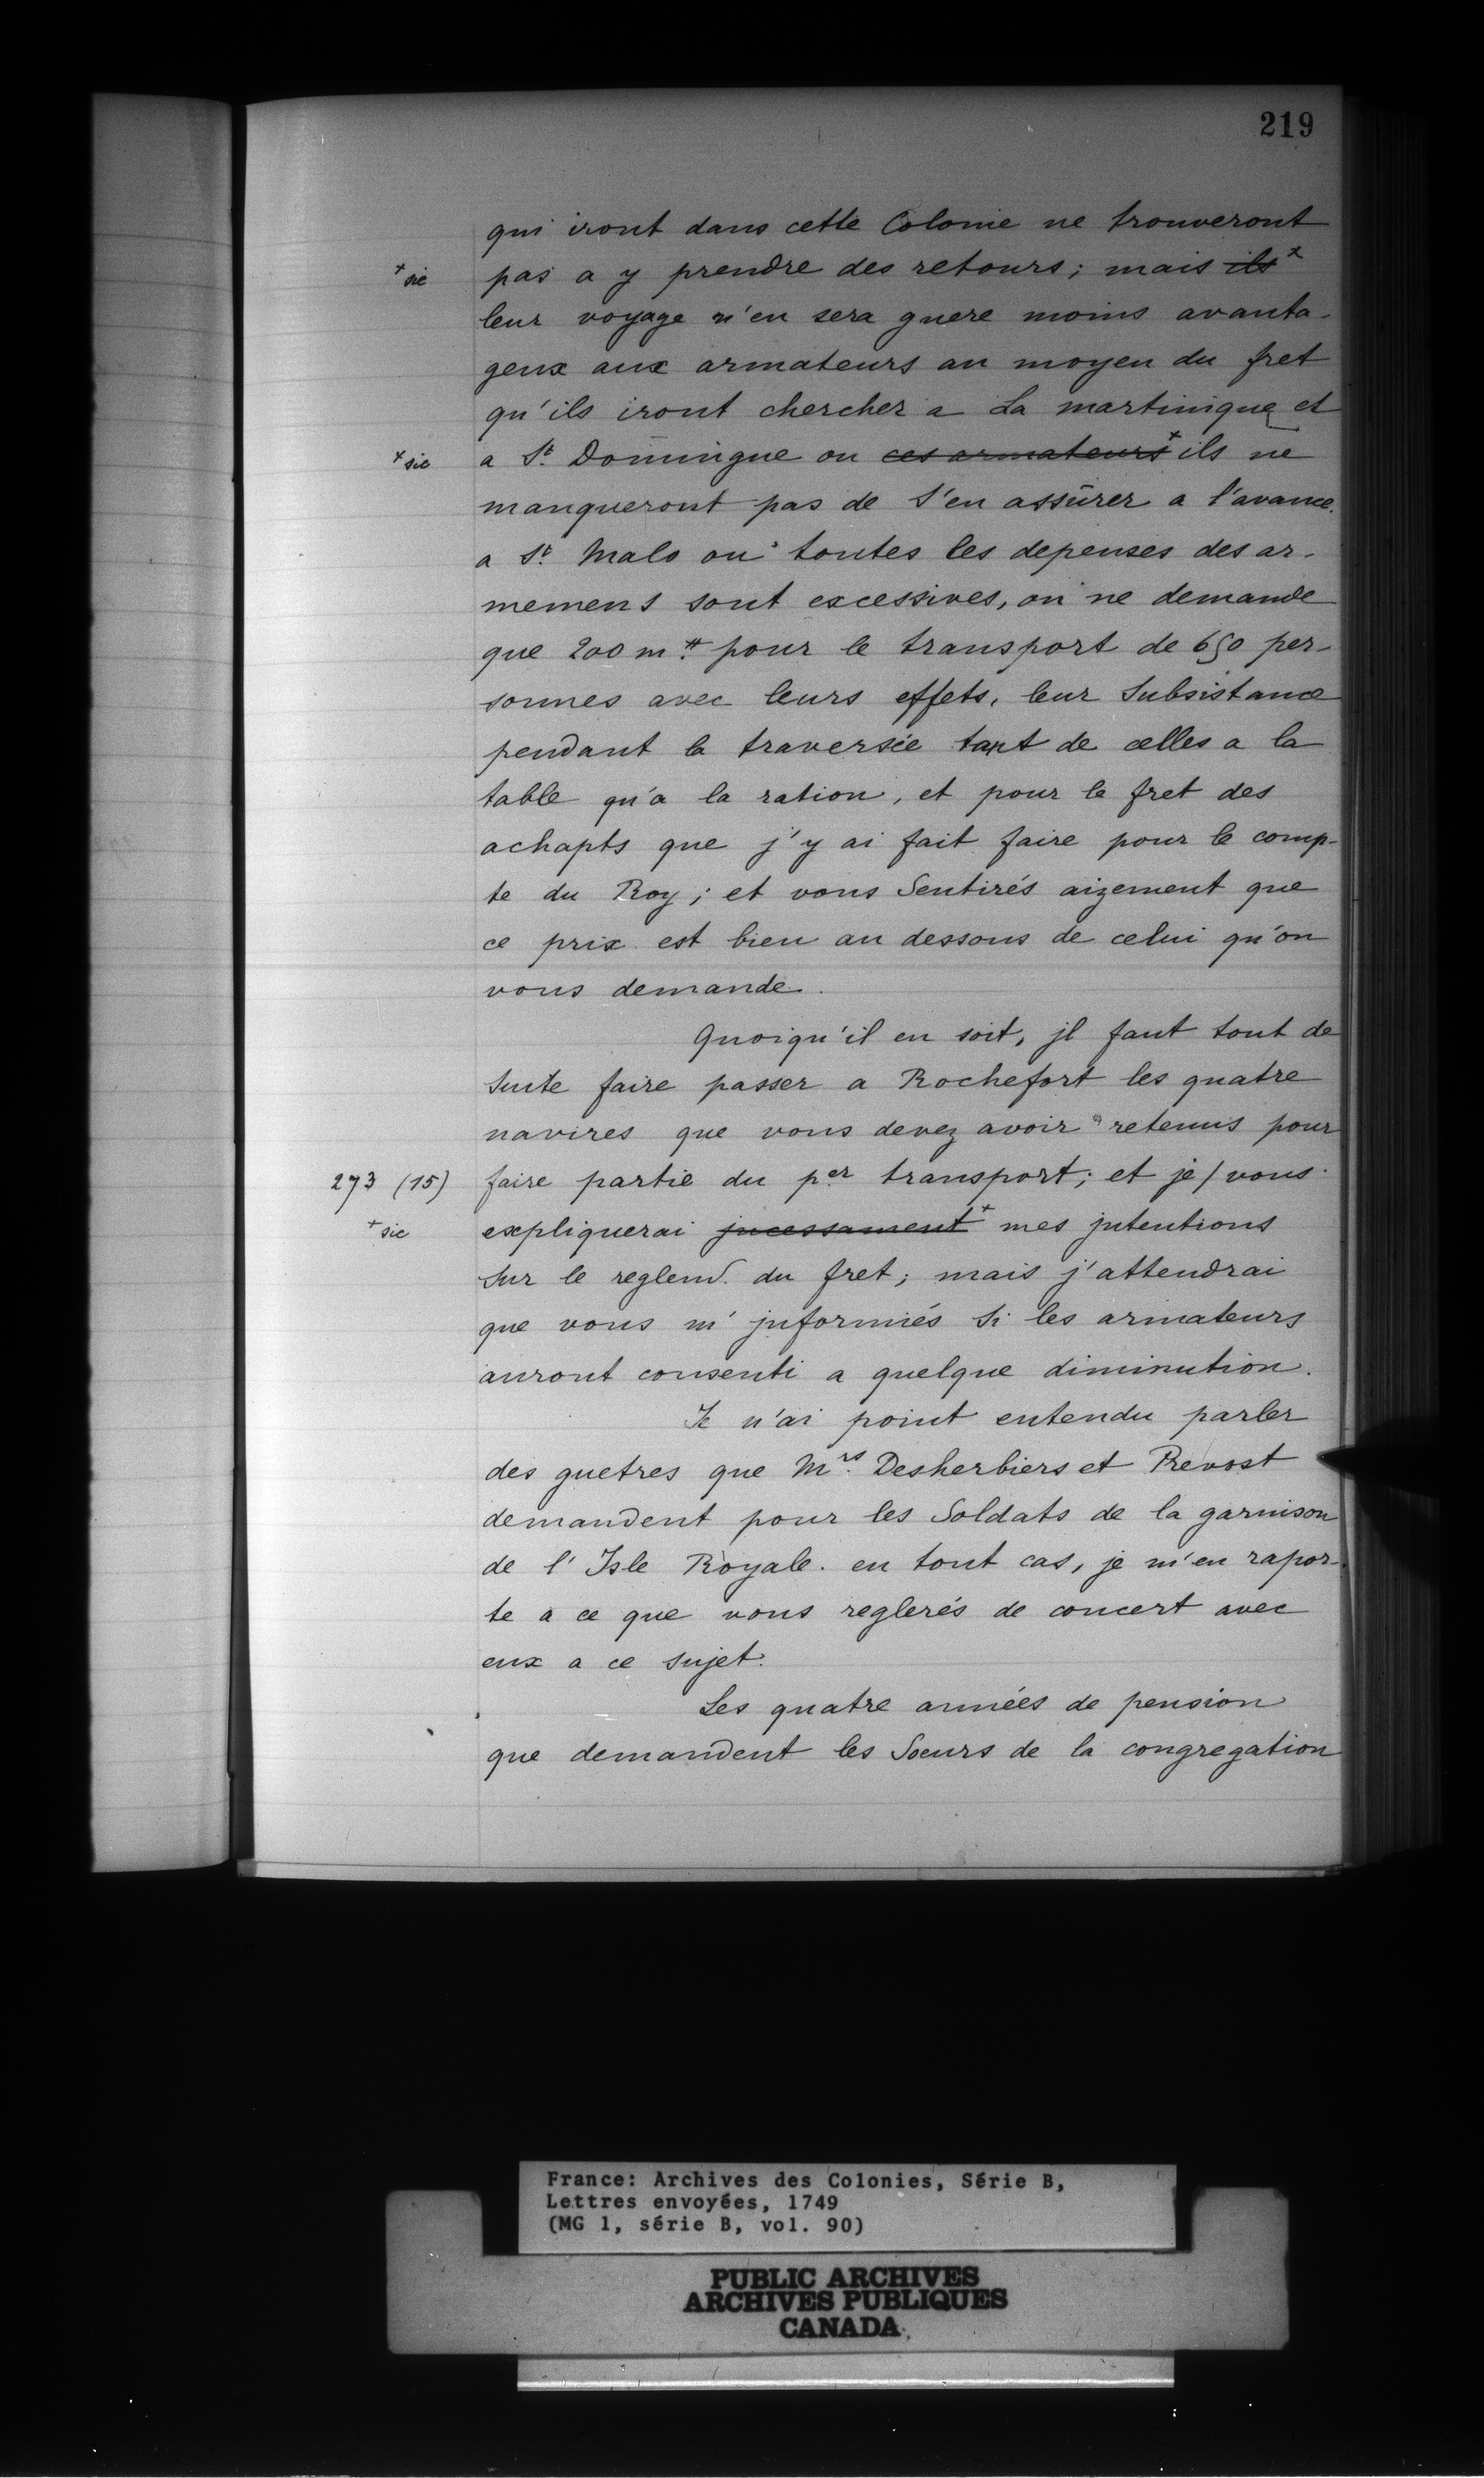 219
qui iront dans cette Colonie ne trouveront
+ sic pas a y prendre des retours; mais ils +
leur voyage n'en sera guere moins avanta-
geux aux armateurs au moyen du fret
qu'ils iront chercher a La martinique et
+ sic a St. Domingue ou ces armateurs + ils ne
manqueront pas de s'en assûrer a l'avance.
a St. Malo ou toutes les depenses des ar-
memens sont excessives, on ne demande
que 200 m.# pour le transport de 650 per-
sonnes avec leurs effets, leur Subsistance
pendant la traversée tant de celles a la
table qu'a la ration, et pour le fret des
achapts que j'y ai fait faire pour le comp-
te du Roy; et vous Sentirés aizement que
ce prix est bien au dessous de celui qu'on
vous demande.
Quoiqu'il en soit, jl faut tout de
suite faire passer a Rochefort les quatre
navires que vous devez avoir retenus pour
273 (15) faire partie du per transport; et je / vous
+ sic expliquerai jncessament + mes jntentions
sur le reglemt. du fret; mais j'attendrai
que vous m'jnformiés Si les armateurs
auront consenti a quelque diminution.
Je n'ai point entendu parler
des guetres que Mrs. Desherbiers et Prevost
demandent pour les Soldats de la garnison
de l'Isle Royale. en tout cas, je m'en rapor-
te a ce que vous reglerés de concert avec
eux a ce sujet.
Les quatre années de pension
que demandent les Soeurs de la congregation
France: Archives des Colonies, Série B,
Lettres envoyées, 1749
(MG 1, série B, vol. 90)
PUBLIC ARCHIVES
ARCHIVES PUBLIQUES
CANADA